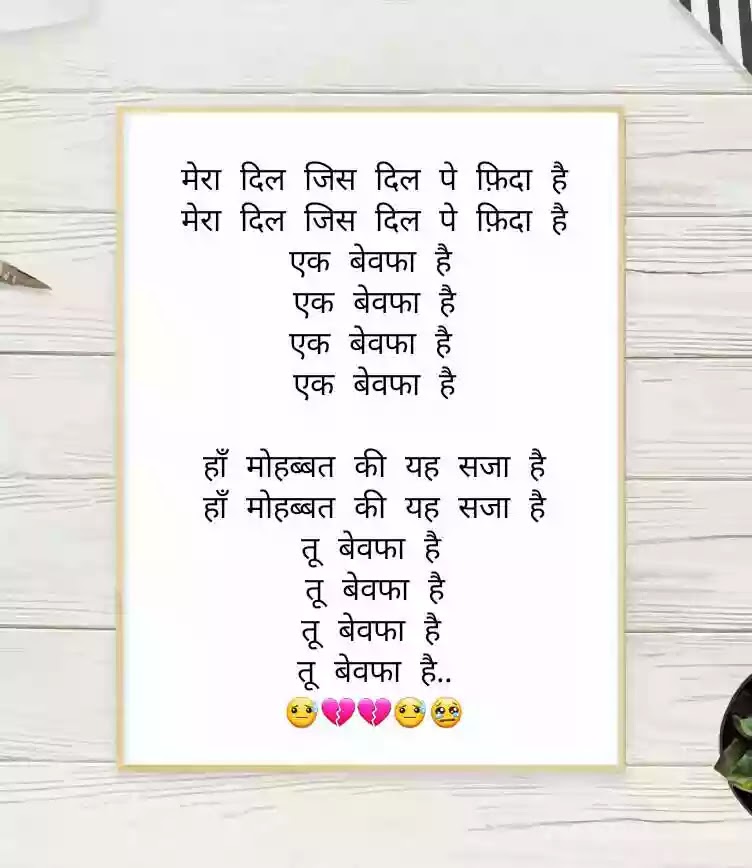 मेरा दिल जिस दिल पे फ़िदा है
मेरा दिल जिस दिल पे फ़िदा है
एक बेवफा है
एक बेवफा है
एक बेवफा है
एक बेवफा है
हाँ मोहब्बत की यह सजा है
हाँ मोहब्बत की यह सजा है
तू बेवफा है
तू बेवफा है
तू बेवफा है
तू बेवफा है..
😓💔💔😓😢